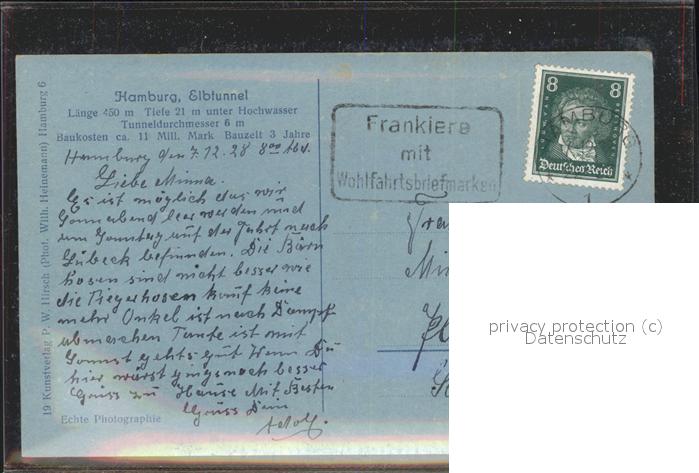 Hamburg, Elbtunnel
Länge 450 m Tiefe 21 m unter Hochwasser
Tunneldurchmesser 6 m
Baukosten ca. 11 Mill. Mark Bauzeit 3 Jahre
Hamburg den 7.12.28 8 00 Abd.
Liebe Minna.
Es ist möglich das wir
Sonnabend leer werden und
am Sonntag auf der Fahrt nach
Lübeck befinden. Die Bärn
hosen sind nicht besser wie
die Tiegerhosen kauf keine
mehr Onkel ist nach Dampf
abmarschen Tante ist mit
Sonnst gehts gut Wenn Du
hier wärst gings noch besser
Gruss zu Hause Mit Besten
Gruss Dein
Adolf.
Echte Photographie
19 Kunstverlag P. W. Hirsch (Phot. Wilh. Heinemann) Hamburg 6
Frankiere
mit
Wohlfahrtsbriefmarken
8 8
Deutsches Reich
HAMBURG
1
Frau
privacy protection (c)
Datenschutz